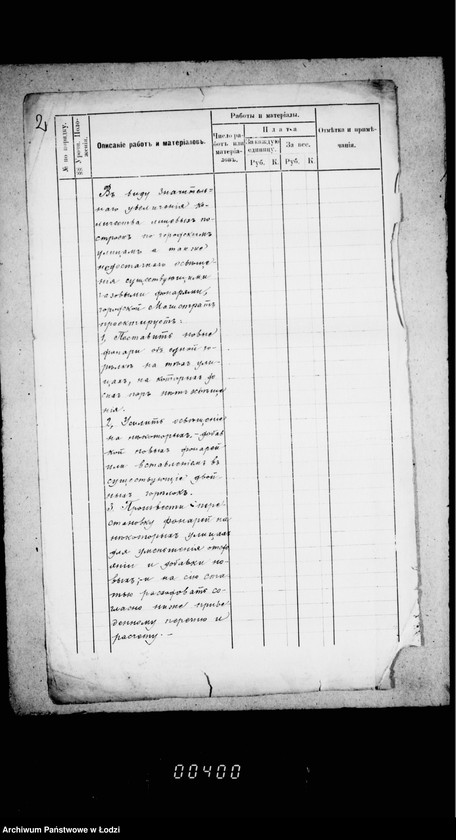 2
№ по порядку.
№ Урочн. Поло-
женія.
Описаніе работъ и матеріаловъ.
Работы и матеріалы.
Число ра-
ботъ или
матеріа-
ловъ.
Плата
За каждую
единицу.
За все.
Руб. К. Руб. К.
Отмѣтка и примѣ-
чанія.
Въ виду значитель-
наго увеличенія ко-
личества лицевыхъ по-
строекъ по городскимъ
улицамъ а также
недостаточнаго освѣще-
нія существующими
газовыми фонарями,
городской Магистратъ
проэктируетъ:
1, Поставить новые
фонари объ одной го-
рѣлкѣ на тѣхъ ули-
цахъ, на которыхъ до
сихъ поръ нѣтъ освѣще-
нія.
2, Усилить освѣщеніе
на нѣкоторыхъ, добав-
кой новыхъ фонарей
или вставленіемъ въ
существующіе двой-
ныхъ горѣлокъ.
3. Произвести пере-
становку фонарей на
нѣкоторыхъ улицахъ
для уменьшенія
и добавки но-
выхъ; и на сію ста-
тью расходовать со-
гласно ниже приве-
денному перечню и
расчету. —
00400
Archiwum Państwowe w Łodzi